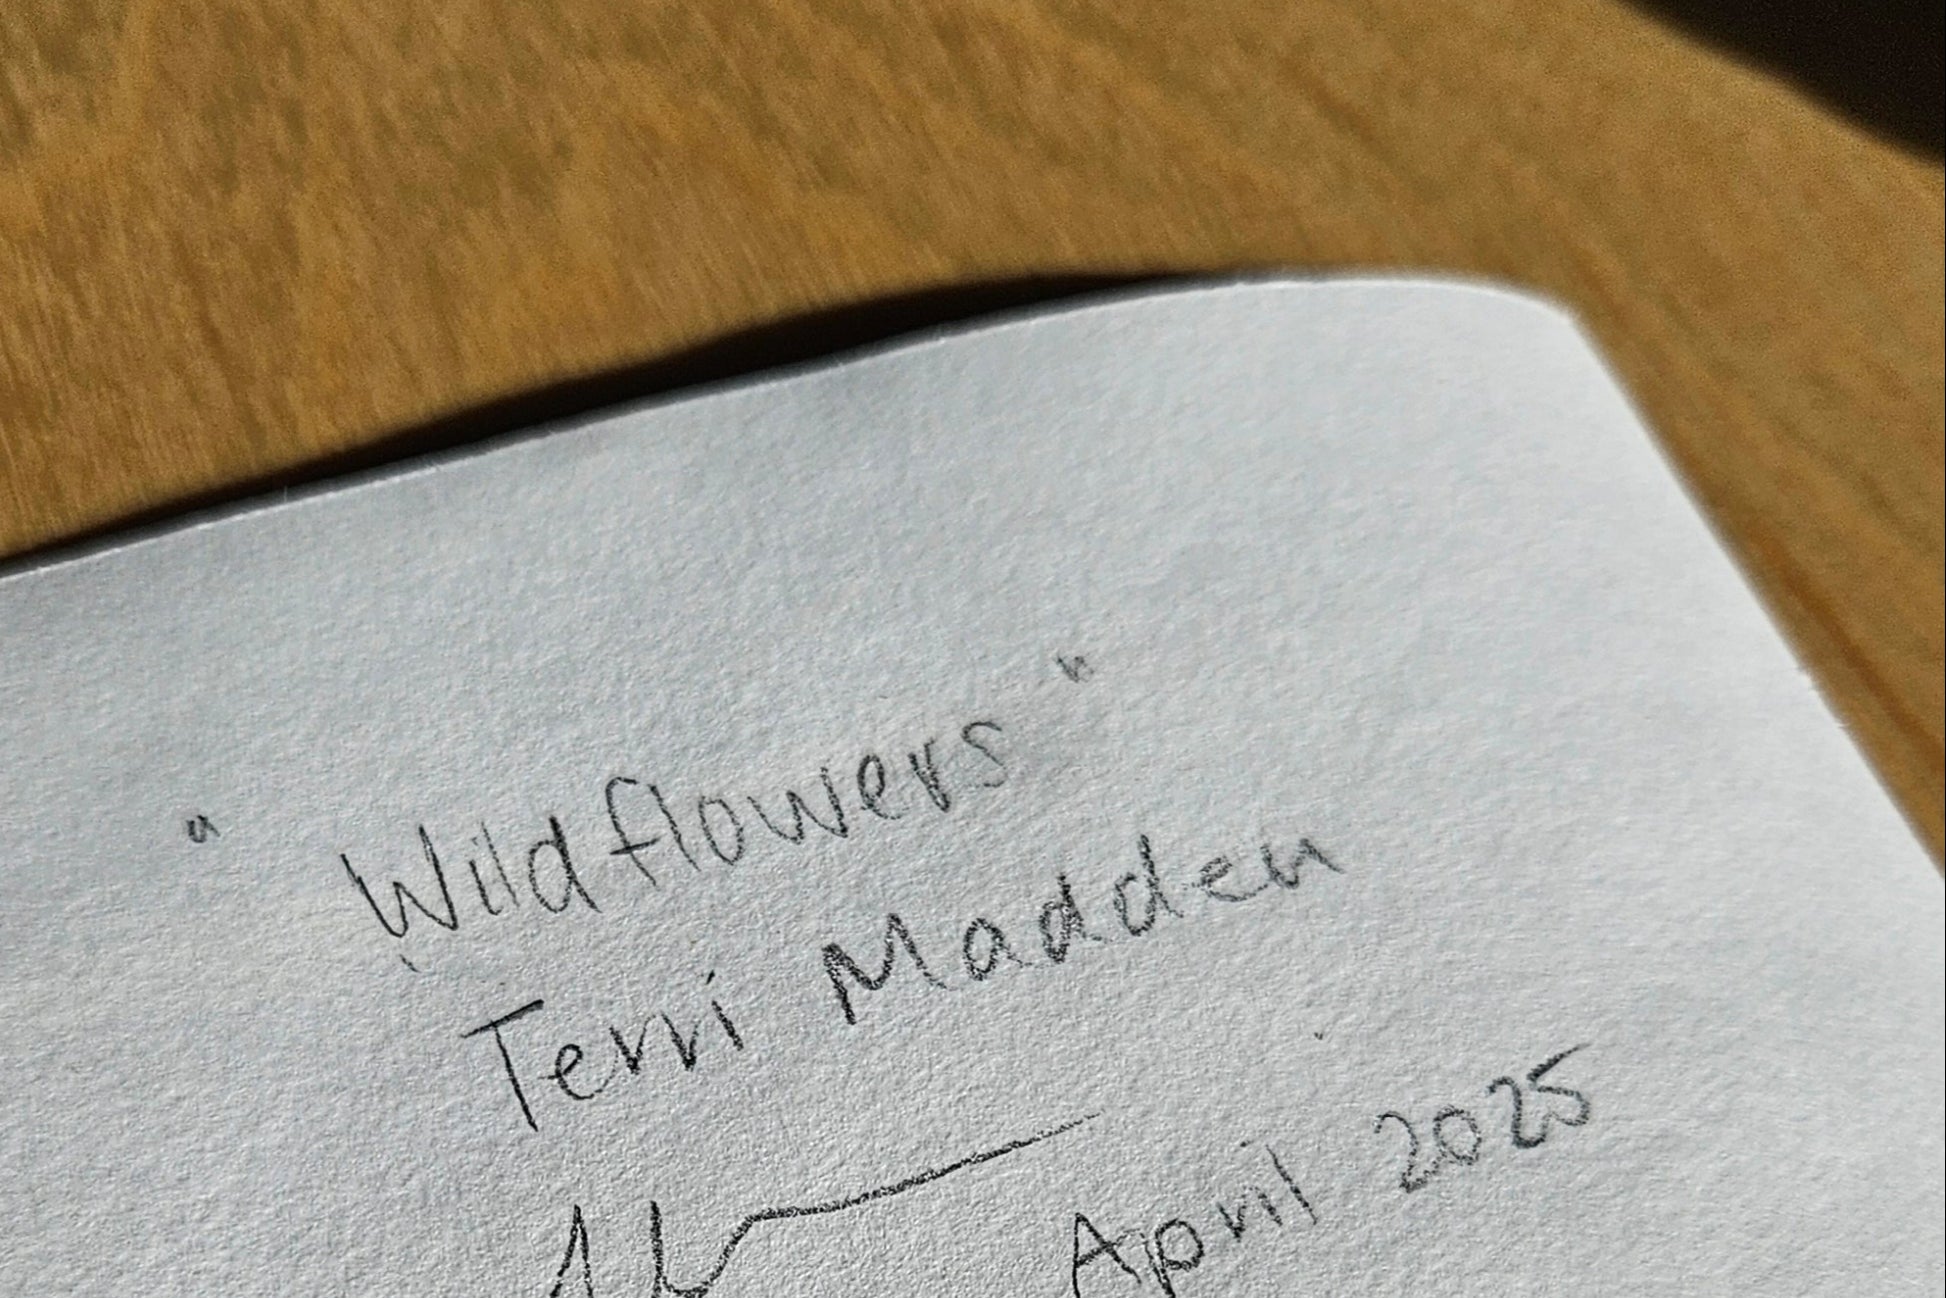 "Wildflowers"
Terri Madden
April 2025